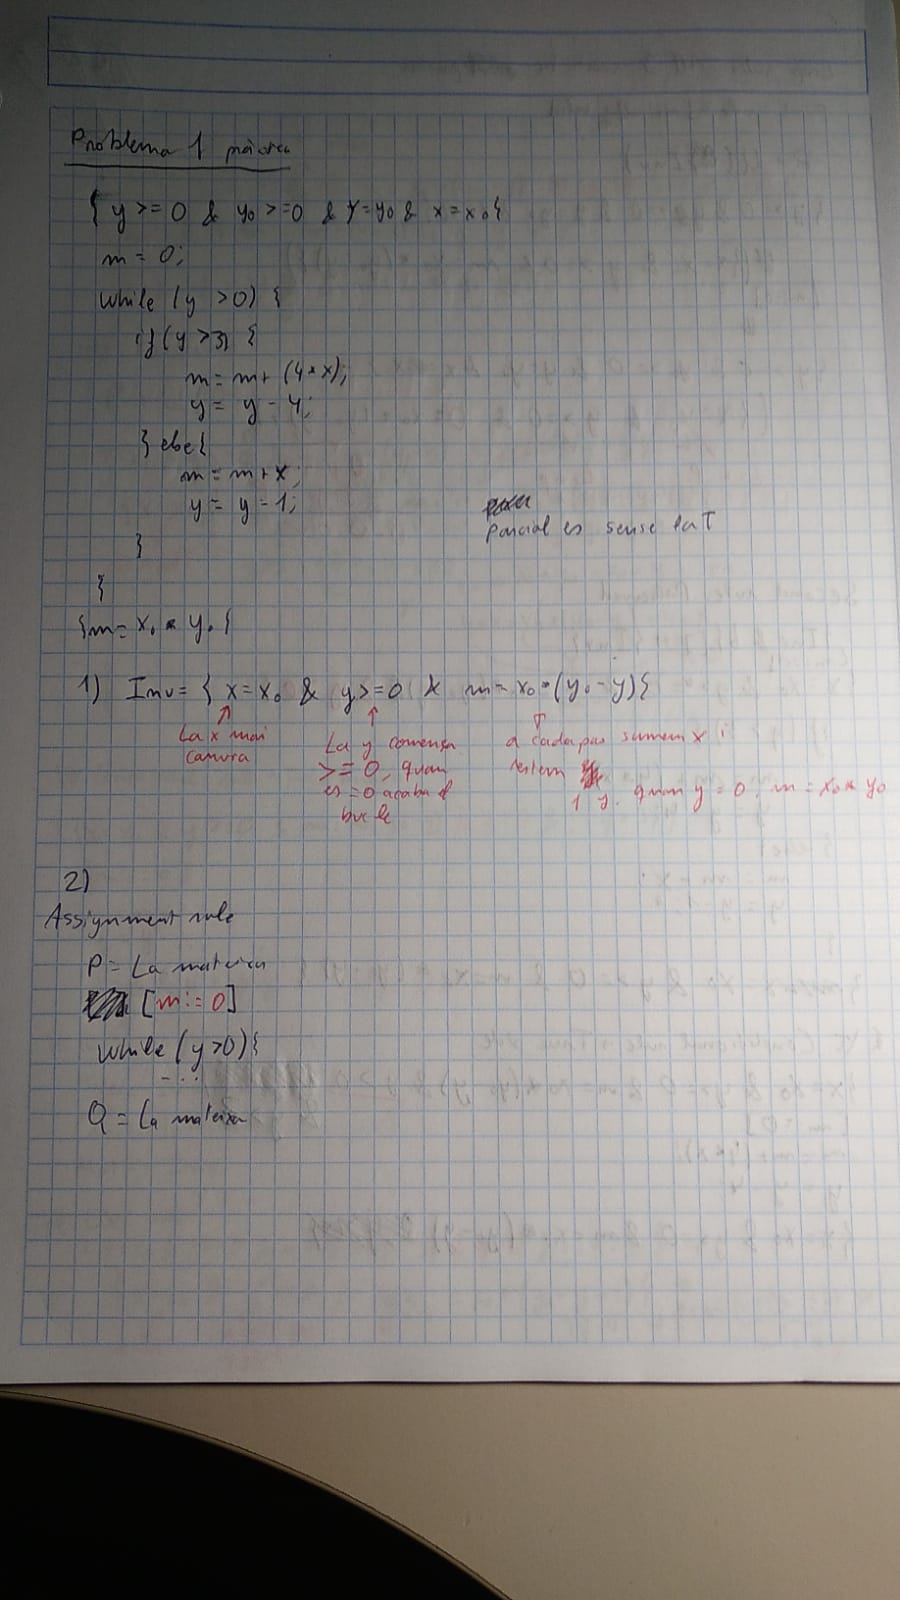 Problema 1 pràctica
{ y >= 0 & y0 >= 0 & y = y0 & x = x0 }
m = 0;
while (y > 0) {
if (y > 3) {
m = m + (4 * x);
y = y - 4;
} else {
m = m + x;
y = y - 1;
Parcial es sense la T
}
}
{ m = x0 * y0 }
1) Inv = { x = x0 & y >= 0 & m = x0 * (y0 - y) }
La x mai
canvia
La y comença
>= 0, quan
es = 0 acaba el
bucle
a cada pas sumem x i
restem
1 y. quan y = 0, m = x0 * y0
2)
Assignment rule
P = La mateixa
[m := 0]
while (y > 0) {
...
Q = La mateixa